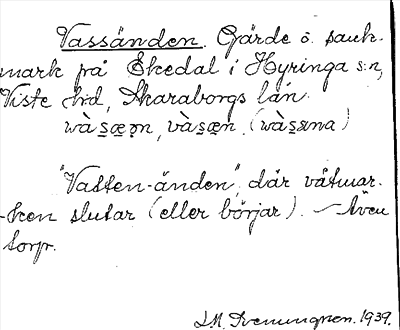 Vassänden. Gärde o. sank-
mark på Ekedal i Hyringa s:n,
Viste hd, Skaraborgs län.
wà s̱æ̱ņ, và s̱æ̱n, (wà s̱æna)
"Vatten-änden", där våtmar-
ken slutar (eller börjar). – Även
torp.
I.M. Svenungsson. 1939.